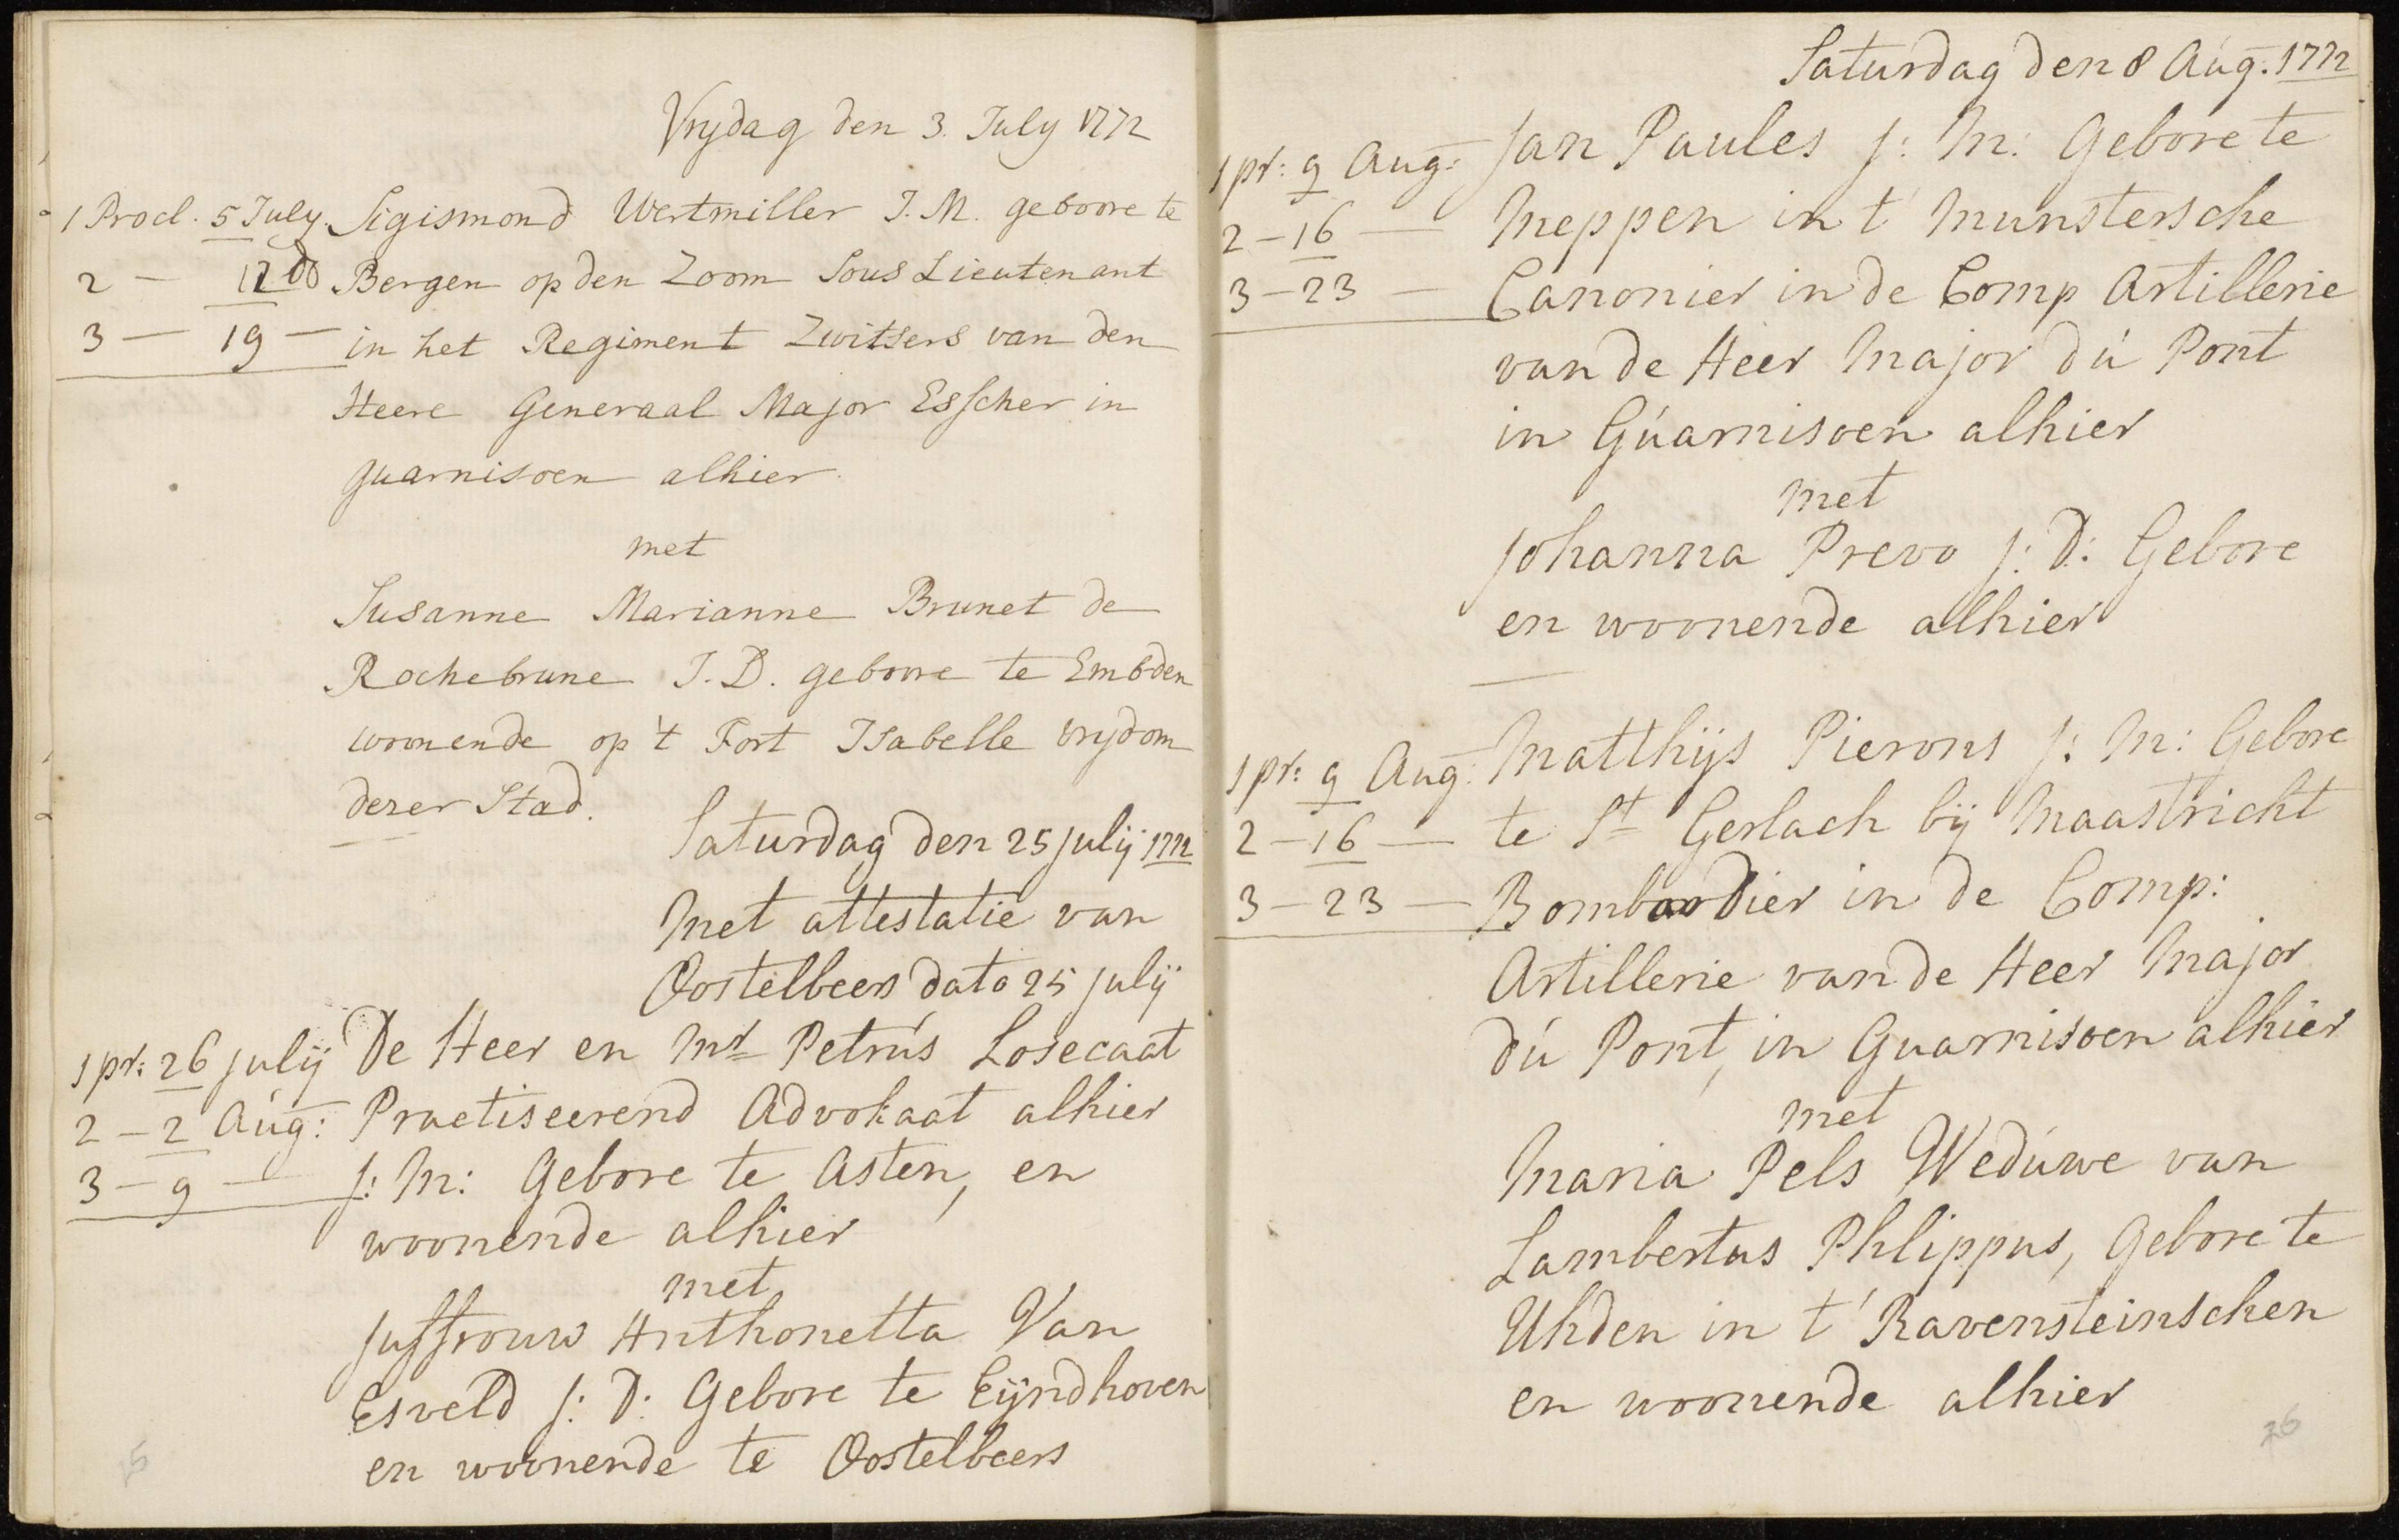 Vrydag den 3. July 1772
1 Procl. 5 July. Sigismond Wertmiller J. M. geboore te
2 — 12 do Bergen op den Zoom Sous Lieutenant
3 — 19 — in het Regiment Zwitsers van den
Heere Generaal Major Esscher in
guarnisoen alhier.
met
Susanne Marianne Brunet de
Rochebrune J. D. geboore te Embden
woonende op 't Fort Isabelle vrydom
dezer Stad.
Saturdag den 25 julij 1772
Met attestatie van
Oostelbeers dato 25 julij
1 pr: 26 julij De Heer en Mr Petrus Losecaat
2 — 2 Aug: Practiseerend Advokaat alhier
3 — 9 — J: M: Gebore te Asten, en
woonende alhier
met
Juffrouw Anthonetta Van
Esveld J: D: Gebore te Eijndhoven
en woonende te Oostelbeers
Saturdag den 8 Aug. 1772
1 pr: 9 Aug: Jan Paules J: M: Gebore te
2 — 16 — Meppen in t' Munstersche
3 — 23 — Canonier in de Comp Artillerie
van de Heer Major du Pont
in Guarnisoen alhier
met
Johanna Prevo J: D: Gebore
en woonende alhier
1 pr: 9 Aug: Matthijs Pierons J: M: Gebore
2 — 16 — te St Gerlach bij Maastricht
3 — 23 — Bombardier in de Comp:
Artillerie van de Heer Major
du Pont, in Guarnisoen alhier
met
Maria Pels Weduwe van
Lambertus Phlippus, Gebore te
Uhden in t' Ravensteinschen
en woonende alhier
26